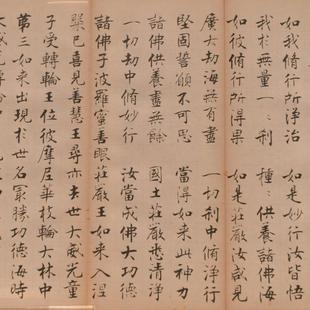 如我脩行所淨治 如是妙行汝皆悟
我於無量一刹 種種供養諸佛海
如彼脩行所得果 如是莊嚴汝咸見
廣大劫海無有盡 一切刹中脩淨行
堅固誓願不可思 當得如來此神力
諸佛供養盡無餘 國土莊嚴悉清淨
一切劫中脩妙行 汝當成佛大功德
諸佛子波羅蜜善眼莊嚴王如來入涅
槃已喜見善慧王尋亦去世大威光童
子受轉輪王位彼摩尼華枝輪大林中
第三如來出現於世名最勝功德海時